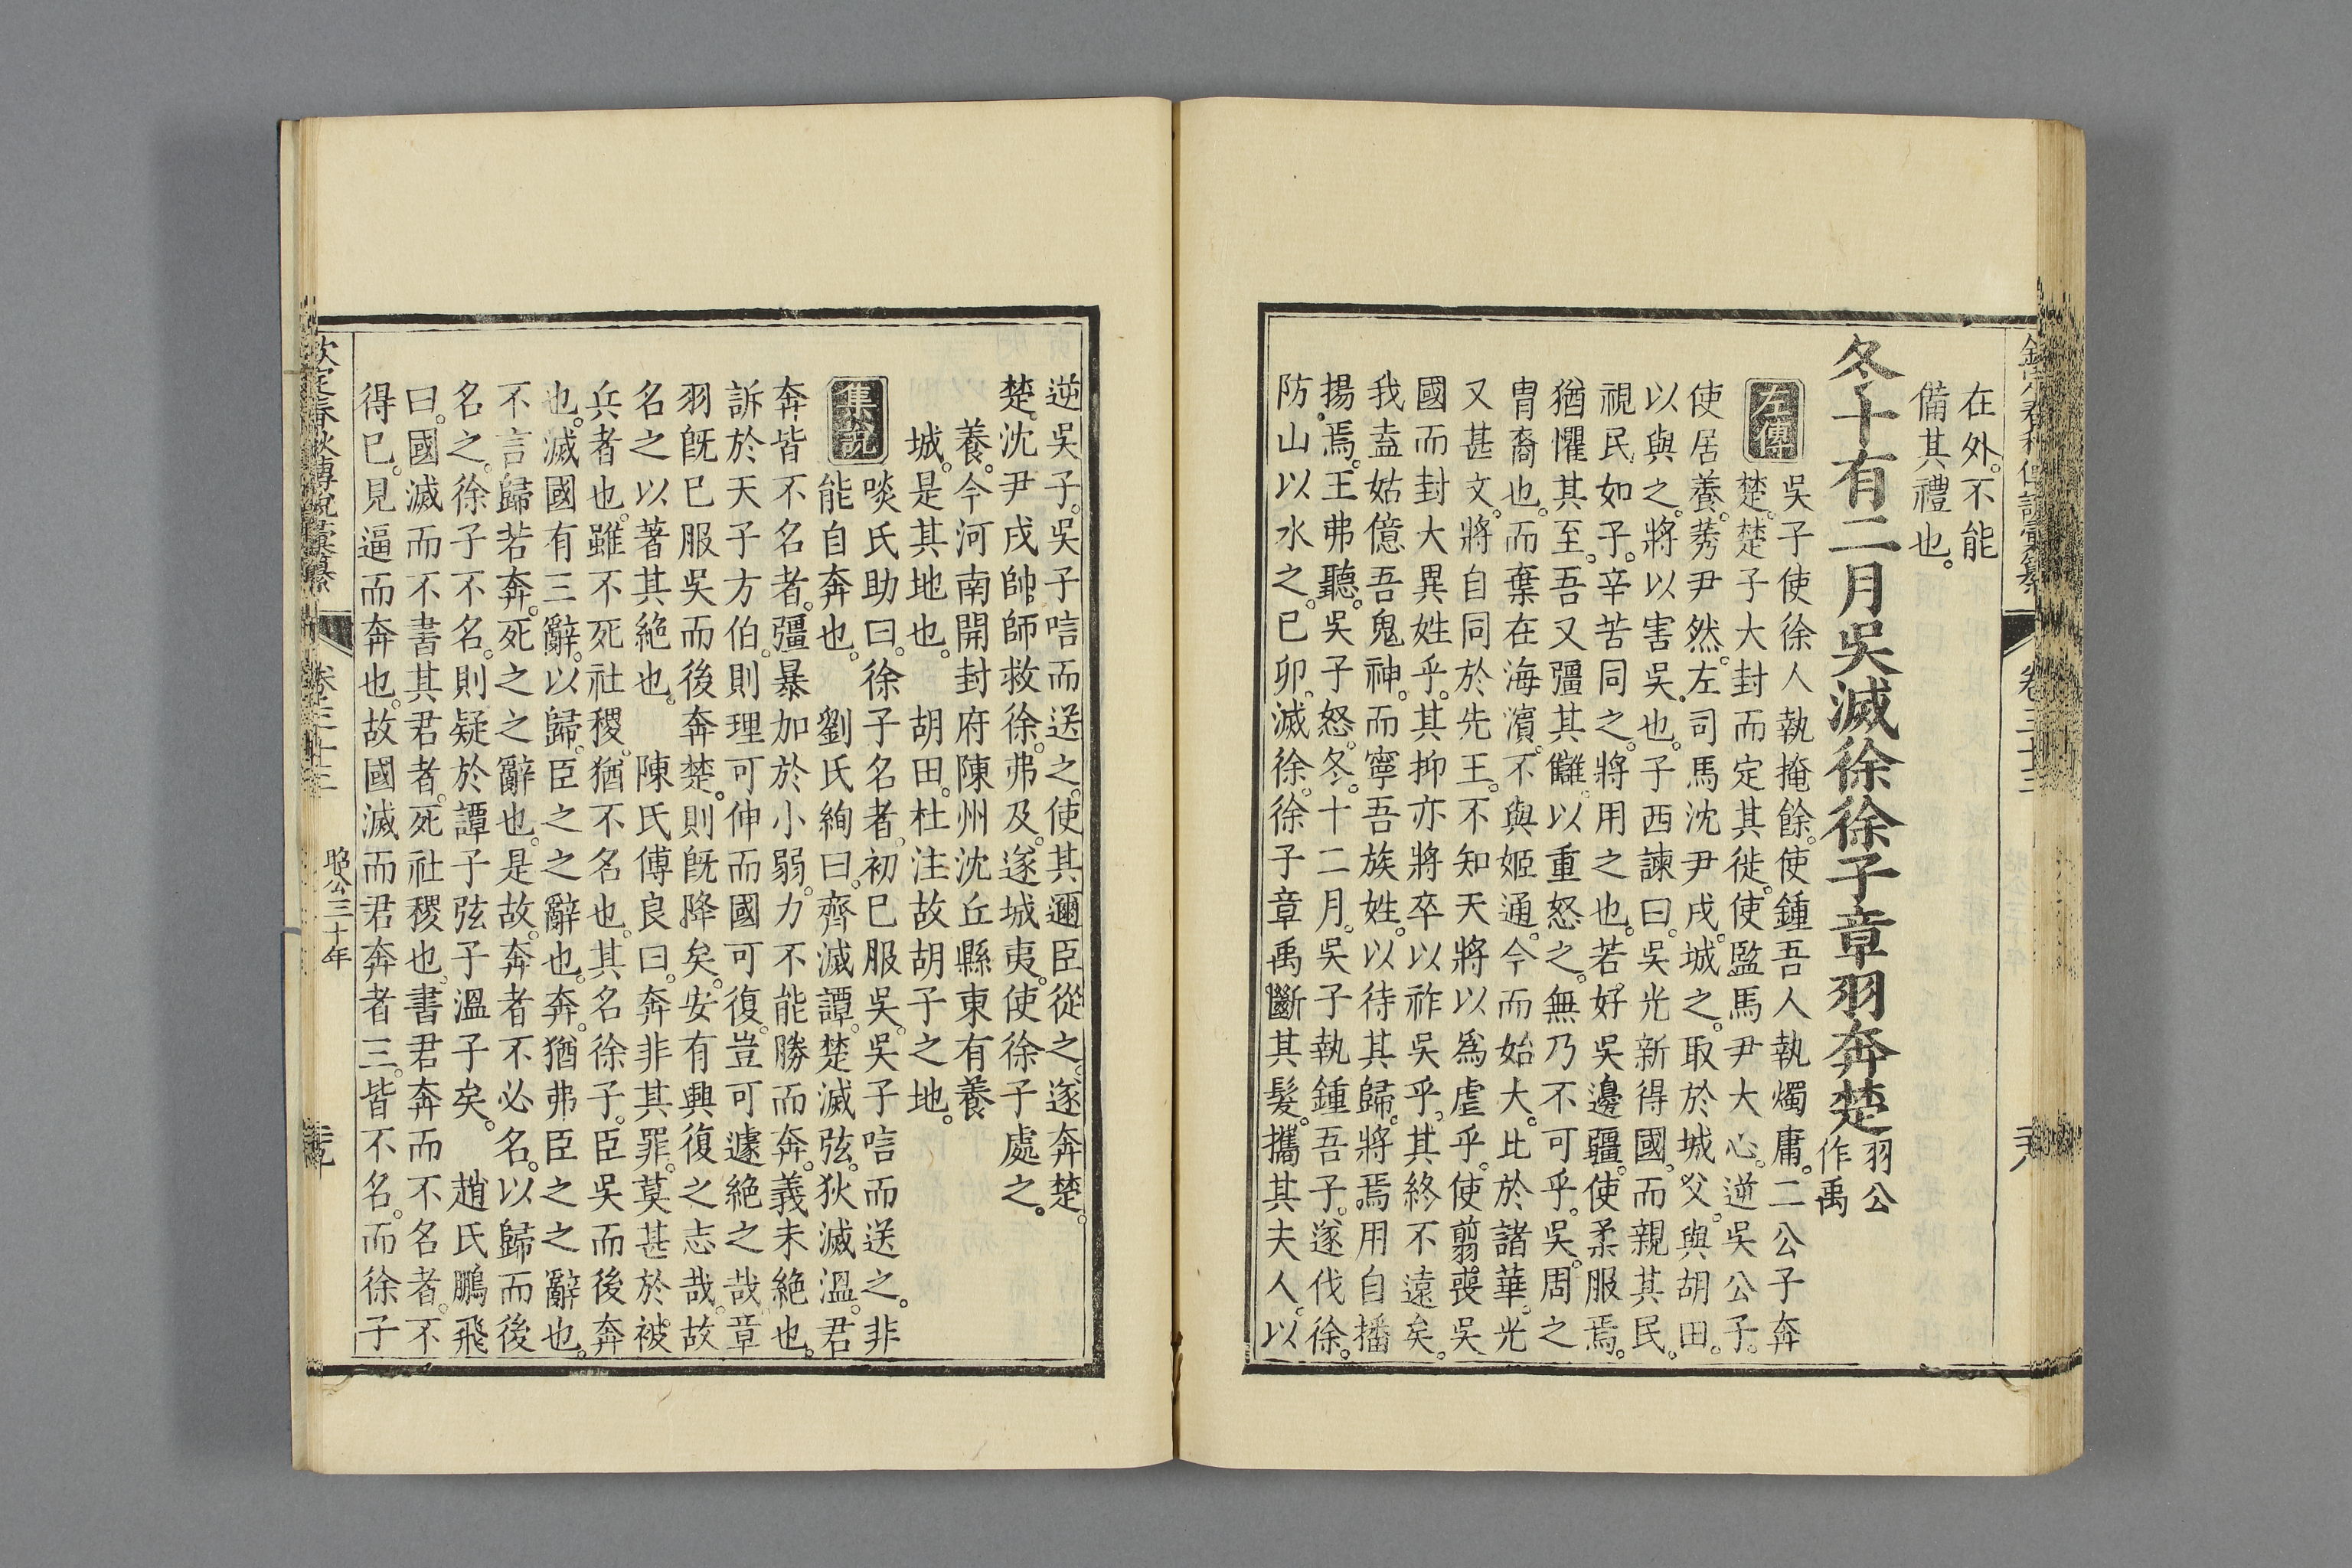 在外。不能
備其禮也。
冬十有二月吳滅徐徐子章羽奔楚
羽公
作禹
左傳
吳子使徐人執掩餘。使鍾吾人執燭庸。二公子奔
楚。楚子大封而定其徙。使監馬尹大心。逆吳公子。
使居養。莠尹然。左司馬沈尹戌。城之。取於城父。與胡田。
以與之。將以害吳也。子西諫曰。吳光新得國。而親其民。
視民如子。辛苦同之。將用之也。若好吳邊疆。使柔服焉。
猶懼其至。吾又彊其讎。以重怒之。無乃不可乎。吳。周之
胄裔也。而棄在海濱。不與姬通。今而始大。比於諸華。光
又甚文。將自同於先王。不知天將以爲虐乎。使翦喪吳
國而封大異姓乎。其抑亦將卒以祚吳乎。其終不遠矣。
我盍姑億吾鬼神。而寧吾族姓。以待其歸。將焉用自播
揚焉。王弗聽。吳子怒。冬。十二月。吳子執鍾吾子。遂伐徐。
防山以水之。已卯。滅徐。徐子章禹。斷其髮。攜其夫人。以
逆吳子。吳子唁而送之。使其邇臣從之。遂奔楚。
楚。沈尹戌帥師救徐。弗及。遂城夷。使徐子處之。
養。今河南開封府陳州沈丘縣東有養
城。是其地也。 胡田。杜注故胡子之地。
集說
啖氏助曰。徐子名者。初已服吳。吳子唁而送之。非
能自奔也。 劉氏絢曰。齊滅譚。楚滅弦。狄滅溫。君
奔皆不名者。彊暴加於小弱。力不能勝而奔。義未絕也。
訴於天子方伯。則理可伸而國可復。豈可遽絕之哉。章
羽旣已服吳而後奔楚。則旣降矣。安有興復之志哉。故
名之以著其絕也。 陳氏傅良曰。奔非其罪。莫甚於被
兵者也。雖不死社稷。猶不名也。其名徐子。臣吳而後奔
也。滅國有三辭。以歸。臣之之辭也。奔。猶弗臣之之辭也。
不言歸若奔。死之之辭也。是故。奔者不必名。以歸而後
名之。徐子不名。則疑於譚子弦子溫子矣。 趙氏鵬飛
曰。國滅而不書其君者。死社稷也。書君奔而不名者。不
得已。見逼而奔也。故國滅而君奔者三。皆不名。而徐子
欽定春秋傳說彙纂
卷三十三
昭公三十年